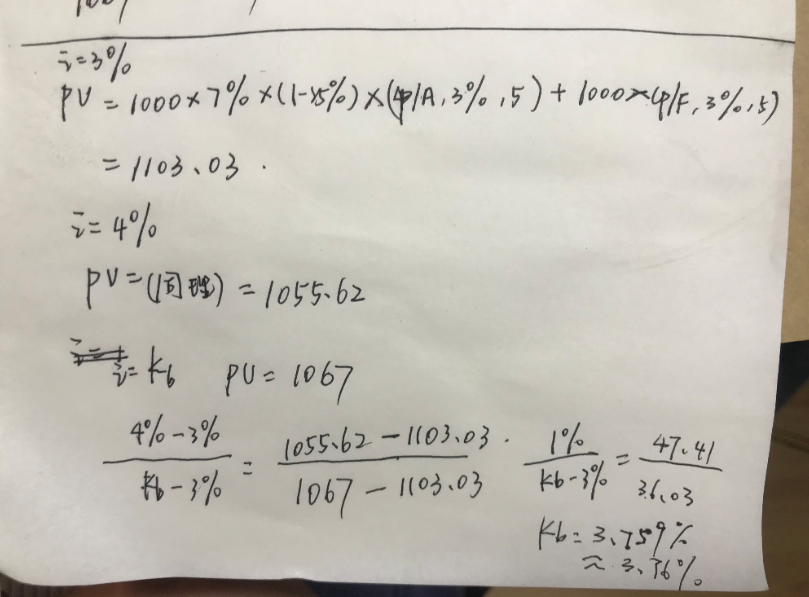 i=3%
PV = 1000×7%×(1-25%)×(P/A,3%,5)+1000×(P/F,3%,5)
= 1103.03.
i=4%
PV=(同理)=1055.62
i=Kb PV=1067
4%-3% / Kb-3% = 1055.62-1103.03 / 1067-1103.03 . 1% / Kb-3% = 47.41 / 36.03
Kb=3.759%
≈3.76%